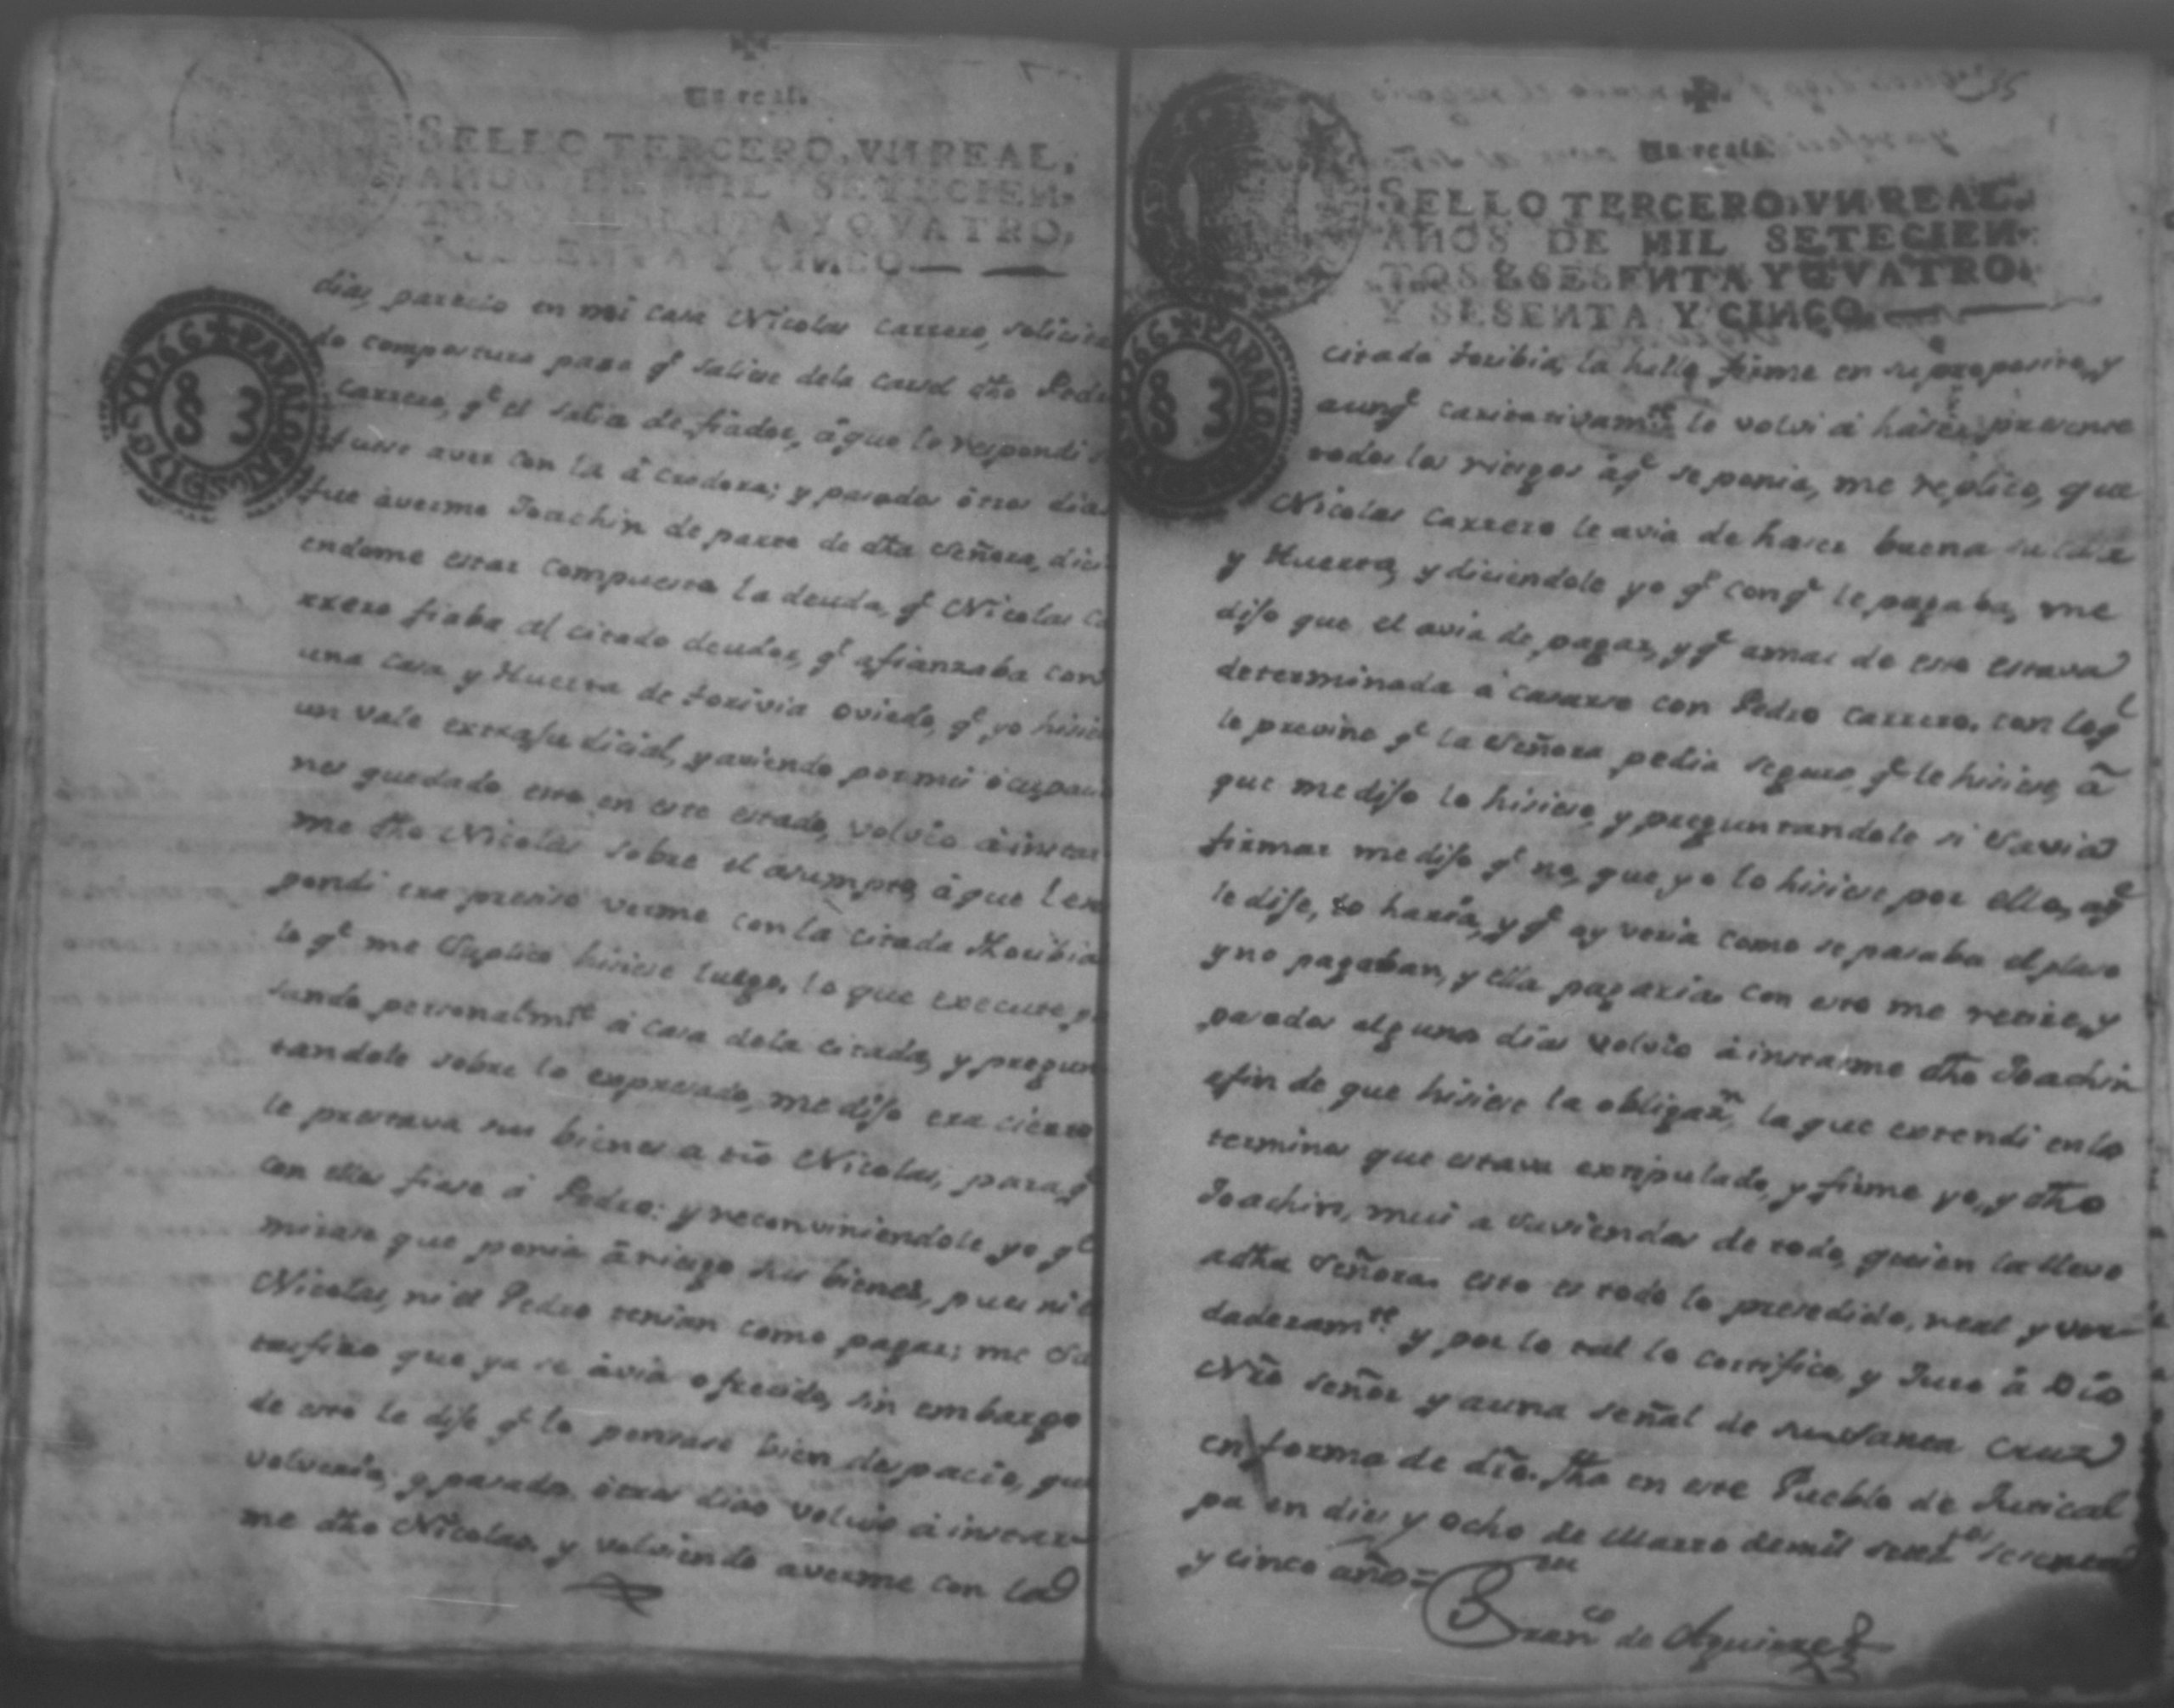 Un real.
SELLO TERCERO, VN REAL,
AÑOS DE MIL SETECIEN-
TOS Y SESENTA Y QVATRO,
Y SESENTA Y CINCO
PARA LOS AÑOS DE 1765 Y 1766
§ 3
dias, parecio en mi casa Nicolas Carrero, solicita
do compostura para q^e saliese dela carsel dho Pedro
Carrero, q^e el salia de fiador, â que le respondi
fuese aver con la â creedora; y pasados ôtros dias
fue âverme Joachin de parte de dha Señora, dici-
endome estar compuesta la deuda, q^e Nicolas Ca
rrero fiaba al citado deudor, q^e afianzaba con
una casa y Huerta de torivia Oviedo, q^e yo hisiese
un vale extrajudicial, y aviendo por mis ôcupacio
nes quedado esto en este estado, volvio â instar
me dho Nicolas sobre el asumpto, â que le res
pondi era preciso verme con la citada Thoribia
lo q^e me Suplico hisiese luego, lo que execute, pa
sando personalm^te â casa dela citada, y pregun
tandole sobre lo expresado, me dijo era cierto
le prestava sus bienes a tio Nicolas, para q^e
con ellos fiase â Pedro: y reconviniendole yo q^e
mirase que ponia â riesgo sus bienes, pues ni el
Nicolas, ni el Pedro tenian como pagar; me Sa
tisfizo que ya se âvia ofrecido, sin embargo
de esto le dije q^e lo pensase bien despacio, que
volveria, y pasados ôtros dias volvio â instar-
me dho Nicolas. y volviendo averme con la
Un real.
SELLO TERCERO, VN REAL,
AÑOS DE MIL SETECIEN-
TOS Y SESENTA Y QVATRO,
Y SESENTA Y CINCO
PARA LOS AÑOS DE 1765 Y 1766
§ 3
citada toribia, la halle firme en su proposito, y
aunq^e caritativam^te le volvi â haser presente
todos los riesgos âq^e se ponia, me replico, que
Nicolas Carrero le avia de haser buena su casa
y Huerta, y diciendole yo q^e con q^e le pagaba, me
dijo que el avia de pagar, y q^e amas de esto estava
determinada â casarse con Pedro Carrero. con lo q^e
le previne q^e la Señora pedia seguro, q^e le hisiese, â
que me dijo lo hisiese, y preguntandole si Savia
firmar me dijo q^e no, que yo lo hisiese por ella, aq^e
le dije, lo haria, y q^e ay veria como se pasaba el plaso
y no pagaban, y ella pagaria. con esto me retire, y
pasados algunos dias volvio â instarme dho Joachin
afin de que hisiese la obligaz^n, la que extendi en los
terminos que estava extipulado, y firme yo, y dho
Joachin, mui a saviendas de todo, quien la llevo
adha Señora. esto es todo lo presedido, real y ver-
daderam^te y por lo tal lo certifico, y Juro â Dio
Nro señor y auna señal de su Santa Cruz
en forma de dro. fho en este Pueblo de Jurical
pa en dies y ocho de Marzo demil setet^os sesenta
y cinco años=
Fran^co de Aguirre